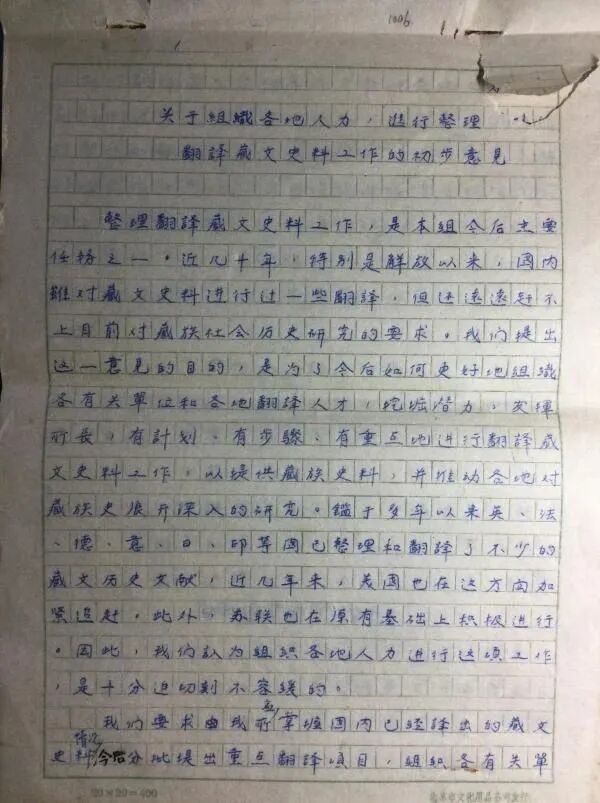 1006
关于組織各地人力，進行整理
翻譯藏文史料工作的初步意見
整理翻譯藏文史料工作，是本組今后主要
任務之一。近几十年，特別是解放以來，国内
雖对藏文史料進行过一些翻譯，但还遠遠赶不
上目前对藏族社会历史研究的要求。我们提出
这一意見的目的，是为了今后如何更好地組織
各有关單位和各地翻譯人才，挖掘潛力，发揮
所長，有計划、有步驟、有重点地進行翻譯藏
文史料工作，以提供藏族史料，并推动各地对
藏族史展开深入的研究。鑑于多年以來英、法
、德、意、日、印等国已整理和翻譯了不少的
藏文历史文献，近几年来，美国也在这方向加
緊追赶。此外，苏联也在原有基础上积极進行
。因此，我们认为組织各地人力進行这項工作
，是十分迫切刻不容緩的。
我们要求由我所掌握国内已經譯出的藏文
史料情况，今后分批提出重点翻譯項目，組织各有关單
20×20=400